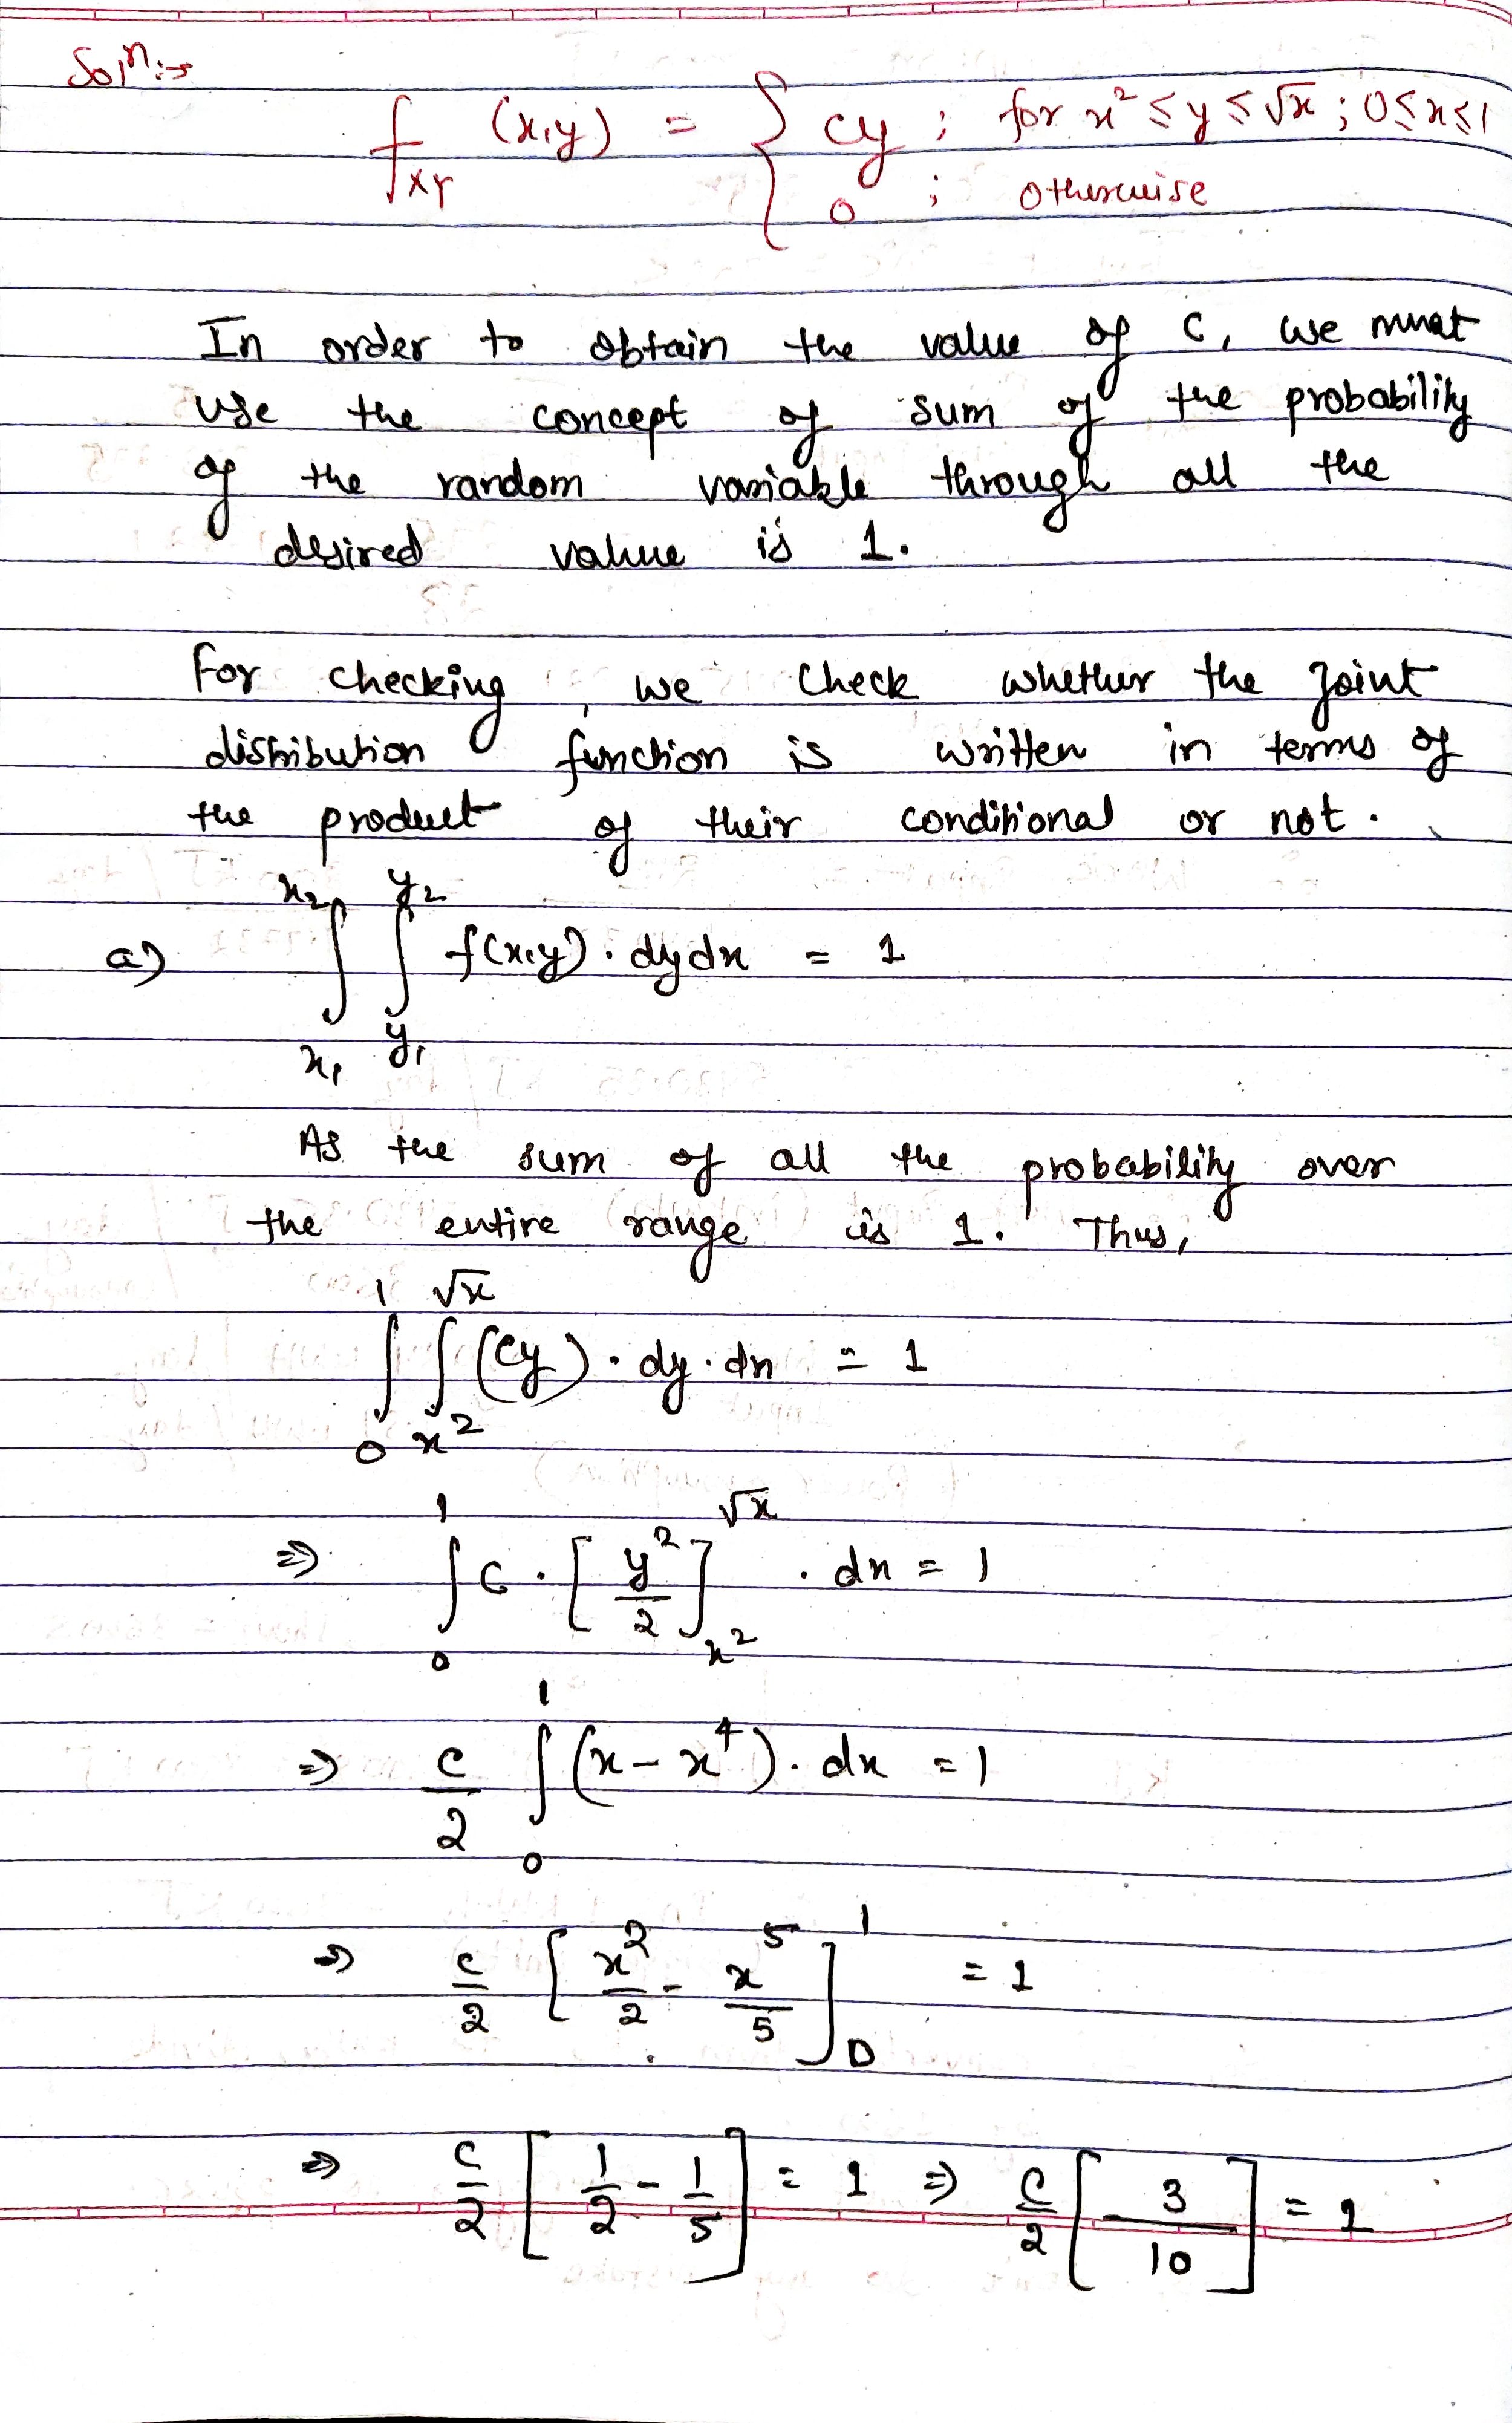 Solⁿ:→
f_XY (x,y) = { cy ; for x² ≤ y ≤ √x ; 0≤x≤1
0 ; otherwise
In order to obtain the value of C, we must
use the concept of sum of the probability
of the random variable through all the
desired value is 1.
For checking, we check whether the joint
distribution function is written in terms of
the product of their conditional or not.
a) ∫_{x₁}^{x₂} ∫_{y₁}^{y₂} f(x,y) · dy dx = 1
As the sum of all the probability over
the entire range is 1. Thus,
∫_0^1 ∫_{x²}^{√x} (cy) · dy · dx = 1
⇒ ∫_0^1 C · [y²/2]_{x²}^{√x} · dx = 1
⇒ C/2 ∫_0^1 (x - x⁴) · dx = 1
⇒ C/2 [x²/2 - x⁵/5]_0^1 = 1
⇒ C/2 [1/2 - 1/5] = 1 ⇒ C/2 [3/10] = 1